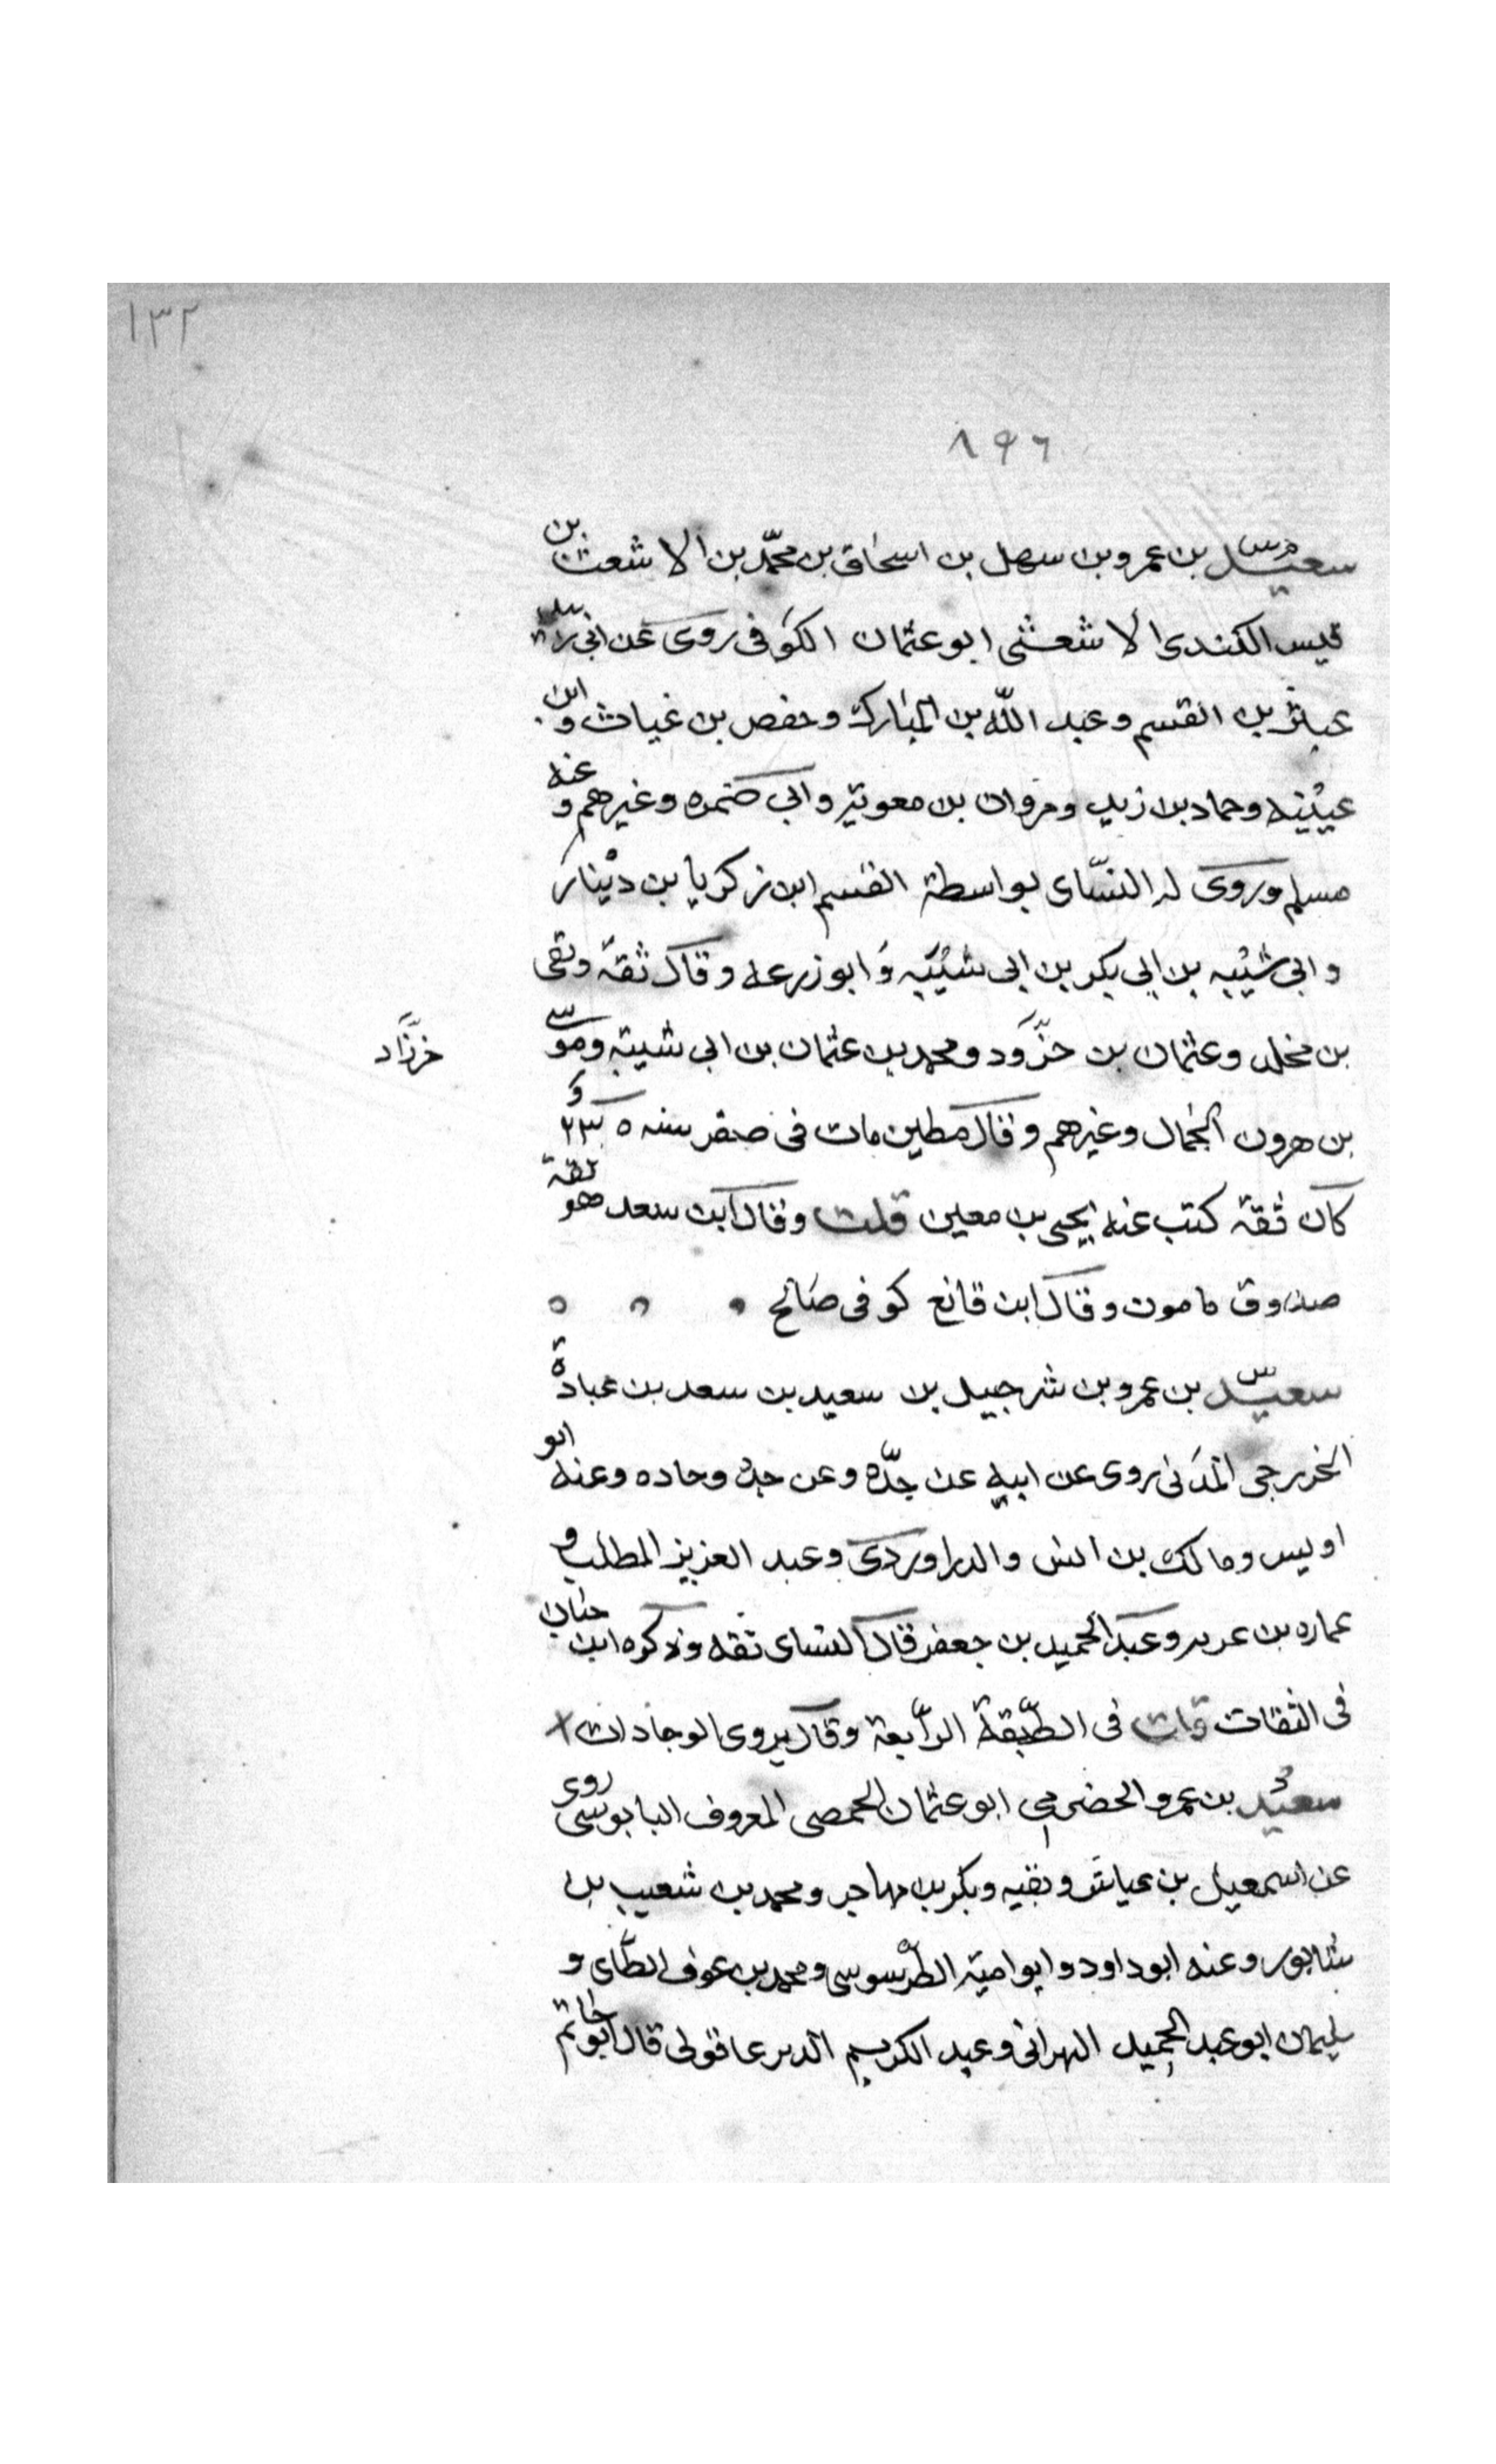 ١٣٢
٨٩٦
سعيد بن عمرو بن سهل بن اسحاق بن محمد بن الاشعث بن
قيس الكندى الاشعثى ابو عثمان الكوفى روى عن ابى زبيد
عبثر بن القسم وعبد الله بن المبارك وحفص بن غياث وابن
عيينه وحماد بن زيد ومروان بن معوية وابي ضمره وغيرهم وعنه
مسلم وروى له النسّاى بواسطة القسم ابن زكريا بن دينار
وابى شيبه بن ابى بكر بن ابى شيبه وابو زرعه وقال ثقة وبقى
بن مخلد وعثمان بن خرّود ومحمد بن عثمان بن ابى شيبة وموسى
خرّزاد
بن هرون الحمال وغيرهم وقال مطين مات فى صفر سنه ٢٣٥ و
كان ثقة كتب عنه يحيى بن معين قلت وقال ابن سعد هو ثقة
صدوق مامون وقال ابن قانع كوفى صالح
سعيد بن عمرو بن شرحبيل بن سعيد بن سعد بن عبادة
الخزرجى المدنى روى عن ابيه عن جدّه وعن جده وحاده وعنه ابو
اويس ومالك بن انس والدراوردى وعبد العزيز المطلب و
عماره بن عرىه وعبد الحميد بن جعفر قال النساى ثقه وذكره ابن حبان
فى الثقات قلت فى الطّبقة الرّابعة وقال يروى الوجادات
سعيد بن عمرو الحضرمي ابو عثمان الحمصى المعروف البابوسى روى
عن اسمعيل بن عياش وبقيه وبكر بن مهاجر ومحمد بن شعيب بن
شابور وعنه ابو داود وابو امية الطرسوسى ومحمد بن عوف الطّاى و
سليمان ابو عبد الحميد البهرانى وعبد الكريم الديرعاقولى قال ابو حاتم